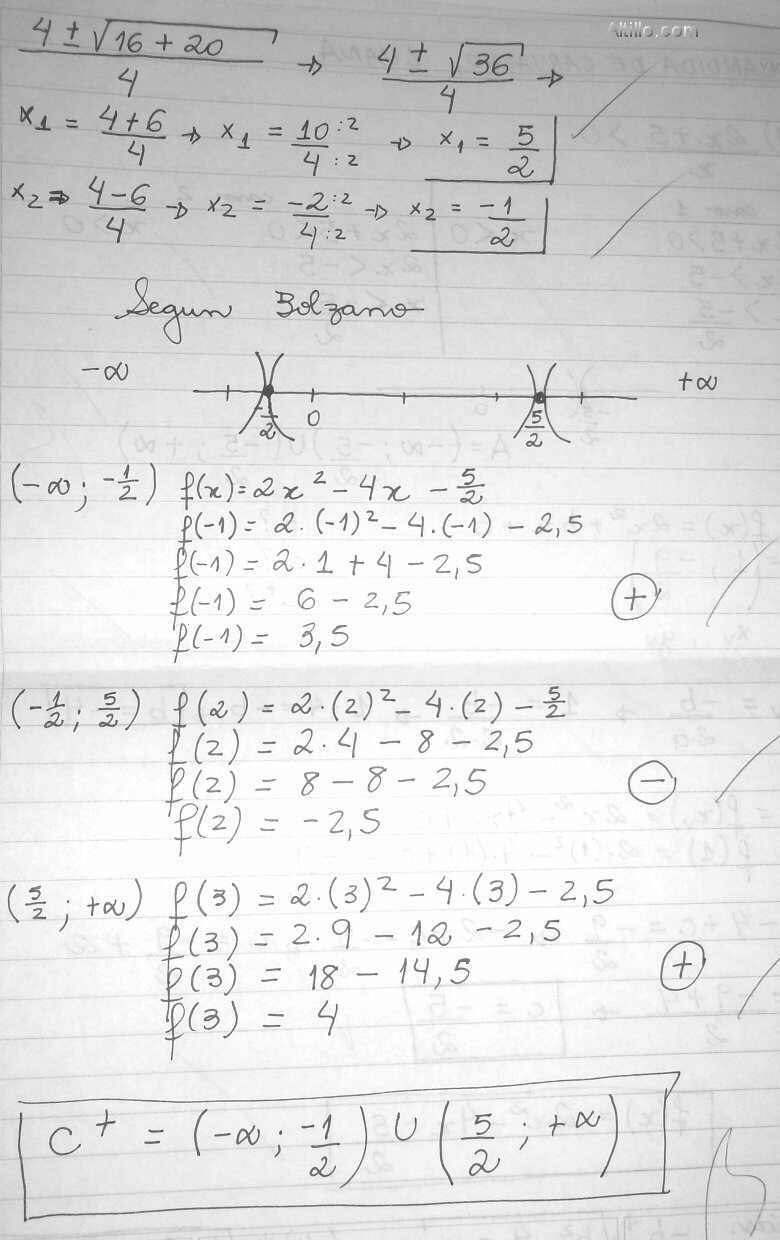 Altillo.com
4 ± √16 + 20 / 4 → 4 ± √36 / 4 →
x1 = 4+6/4 → x1 = 10:2/4:2 → x1 = 5/2
x2 = 4-6/4 → x2 = -2:2/4:2 → x2 = -1/2
Segun Bolzano
-∞ +∞
-1/2 0 5/2
(-∞ ; -1/2) f(x) = 2x² - 4x - 5/2
f(-1) = 2·(-1)² - 4·(-1) - 2,5
f(-1) = 2·1 + 4 - 2,5
f(-1) = 6 - 2,5 +
f(-1) = 3,5
(-1/2 ; 5/2) f(2) = 2·(2)² - 4·(2) - 5/2
f(2) = 2·4 - 8 - 2,5
f(2) = 8 - 8 - 2,5 -
f(2) = -2,5
(5/2 ; +∞) f(3) = 2·(3)² - 4·(3) - 2,5
f(3) = 2·9 - 12 - 2,5
f(3) = 18 - 14,5 +
f(3) = 4
C⁺ = (-∞ ; -1/2) ∪ (5/2 ; +∞)